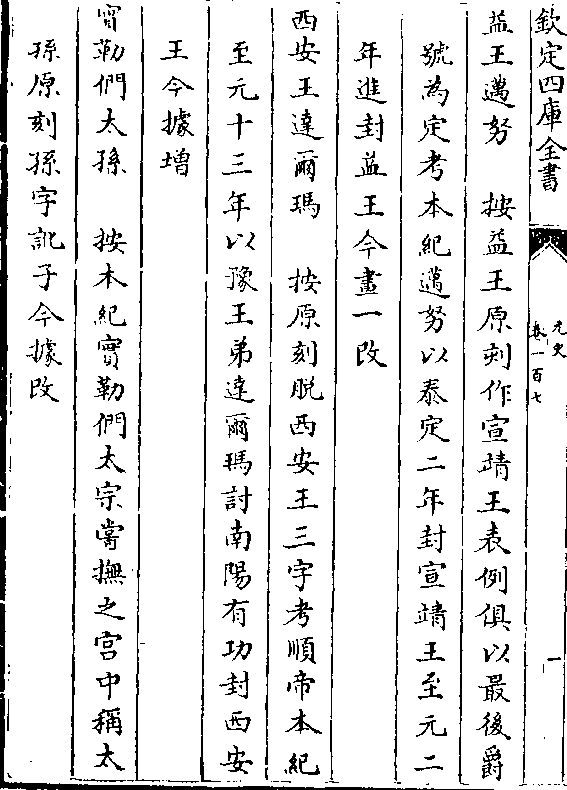 欽定四庫全書
元史
卷一百七
一
益王邁努　按益王原刻作宣靖王表例俱以最後爵
號為定考本紀邁努以泰定二年封宣靖王至元二
年進封益王今畫一改
西安王達爾瑪　按原刻脫西安王三字考順帝本紀
至元十三年以豫王弟達爾瑪討南陽有功封西安
王今據增
實勒們太孫　按本紀實勒們太宗嘗撫之宫中稱太
孫原刻孫字訛子今據改